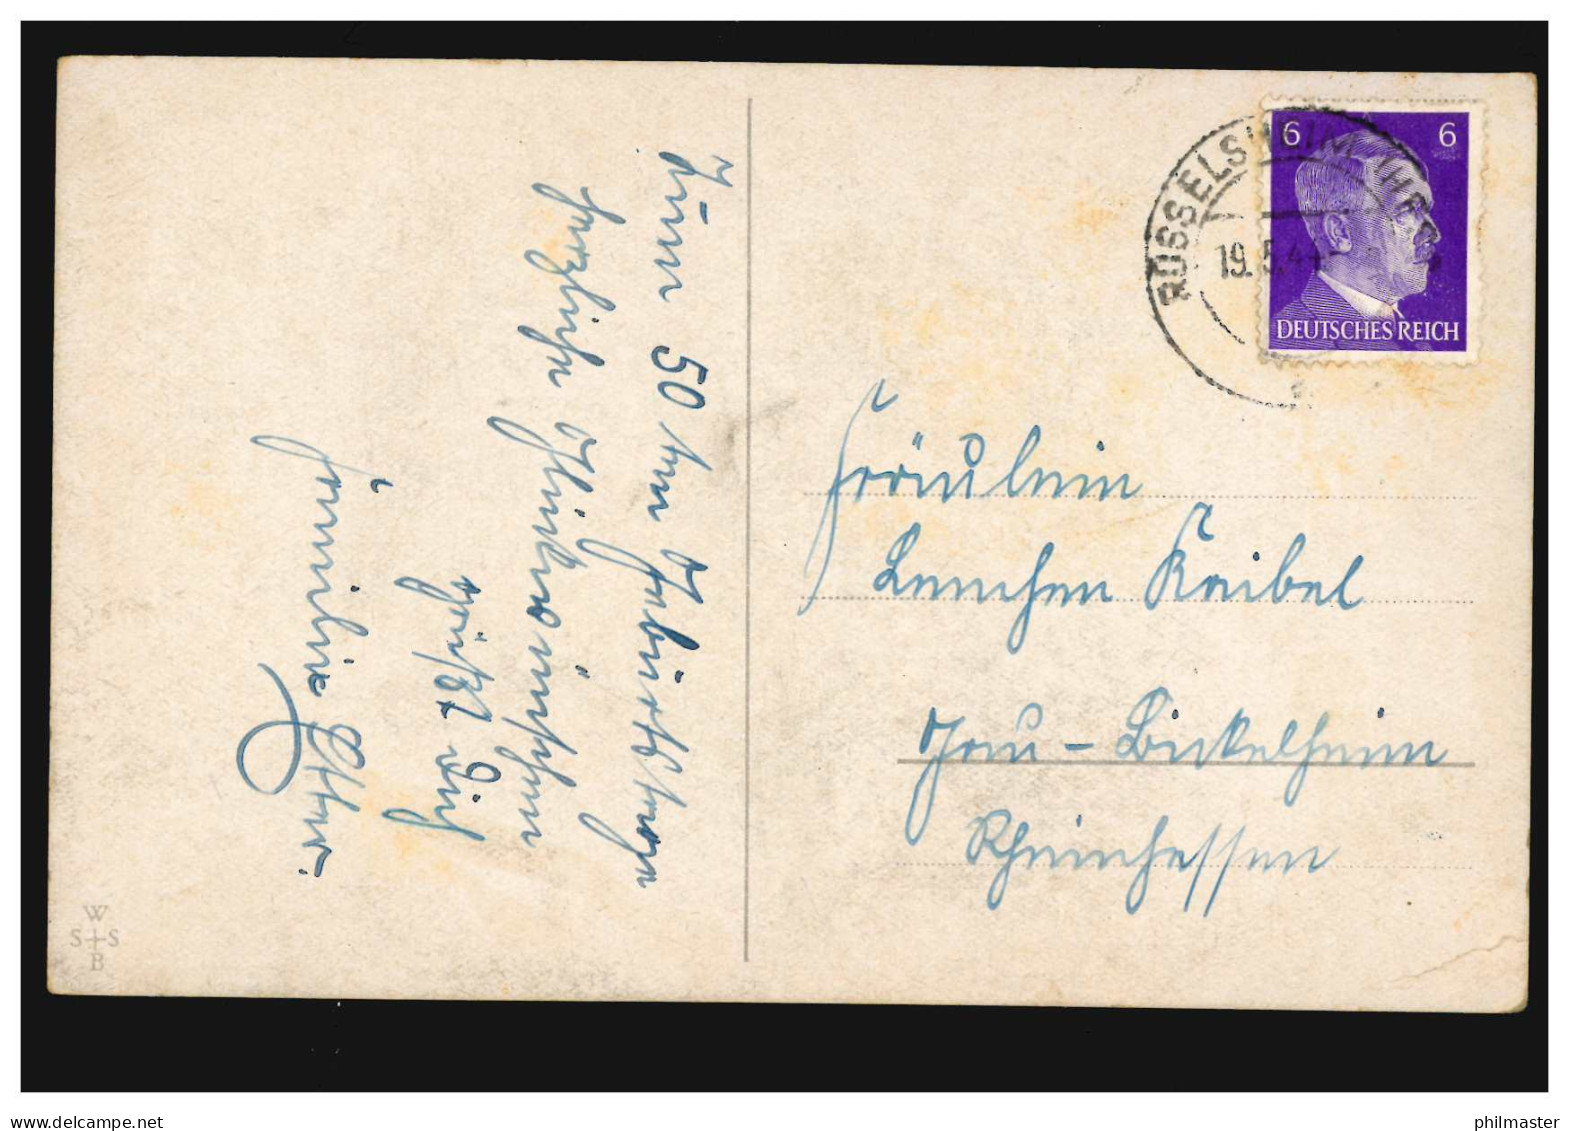 Zum 50 ten Geburtstage
herzliche Glückwünsche
grüßt Dich
Familie Etter.
W
S S
B
RÜSSELSHEIM
19.5.44
6 6
DEUTSCHES REICH
Fräulein
Lenchen Kaibel
Gau-Bickelheim
Rheinhessen
www.delcampe.net
philmaster